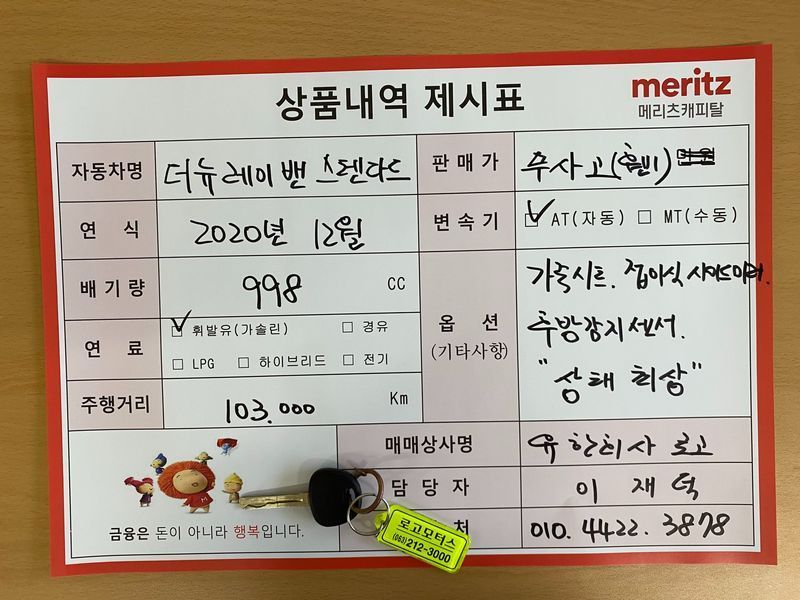 상품내역 제시표
meritz
메리츠캐피탈
자동차명 더뉴레이밴 스텐다드
판매가 무사고
연식 2020년 12월
변속기 ☑ AT(자동) ☐ MT(수동)
배기량 998 CC
옵션
(기타사항)
가죽시트. 접이식 사이드미러.
후방감지센서.
"상태 최상"
연료 ☑ 휘발유(가솔린) ☐ 경유
☐ LPG ☐ 하이브리드 ☐ 전기
주행거리 103.000 Km
매매상사명 유한회사 로고
담당자 이재덕
처 010. 4422. 3878
금융은 돈이 아니라 행복입니다.
로고모터스
(063)212-3000